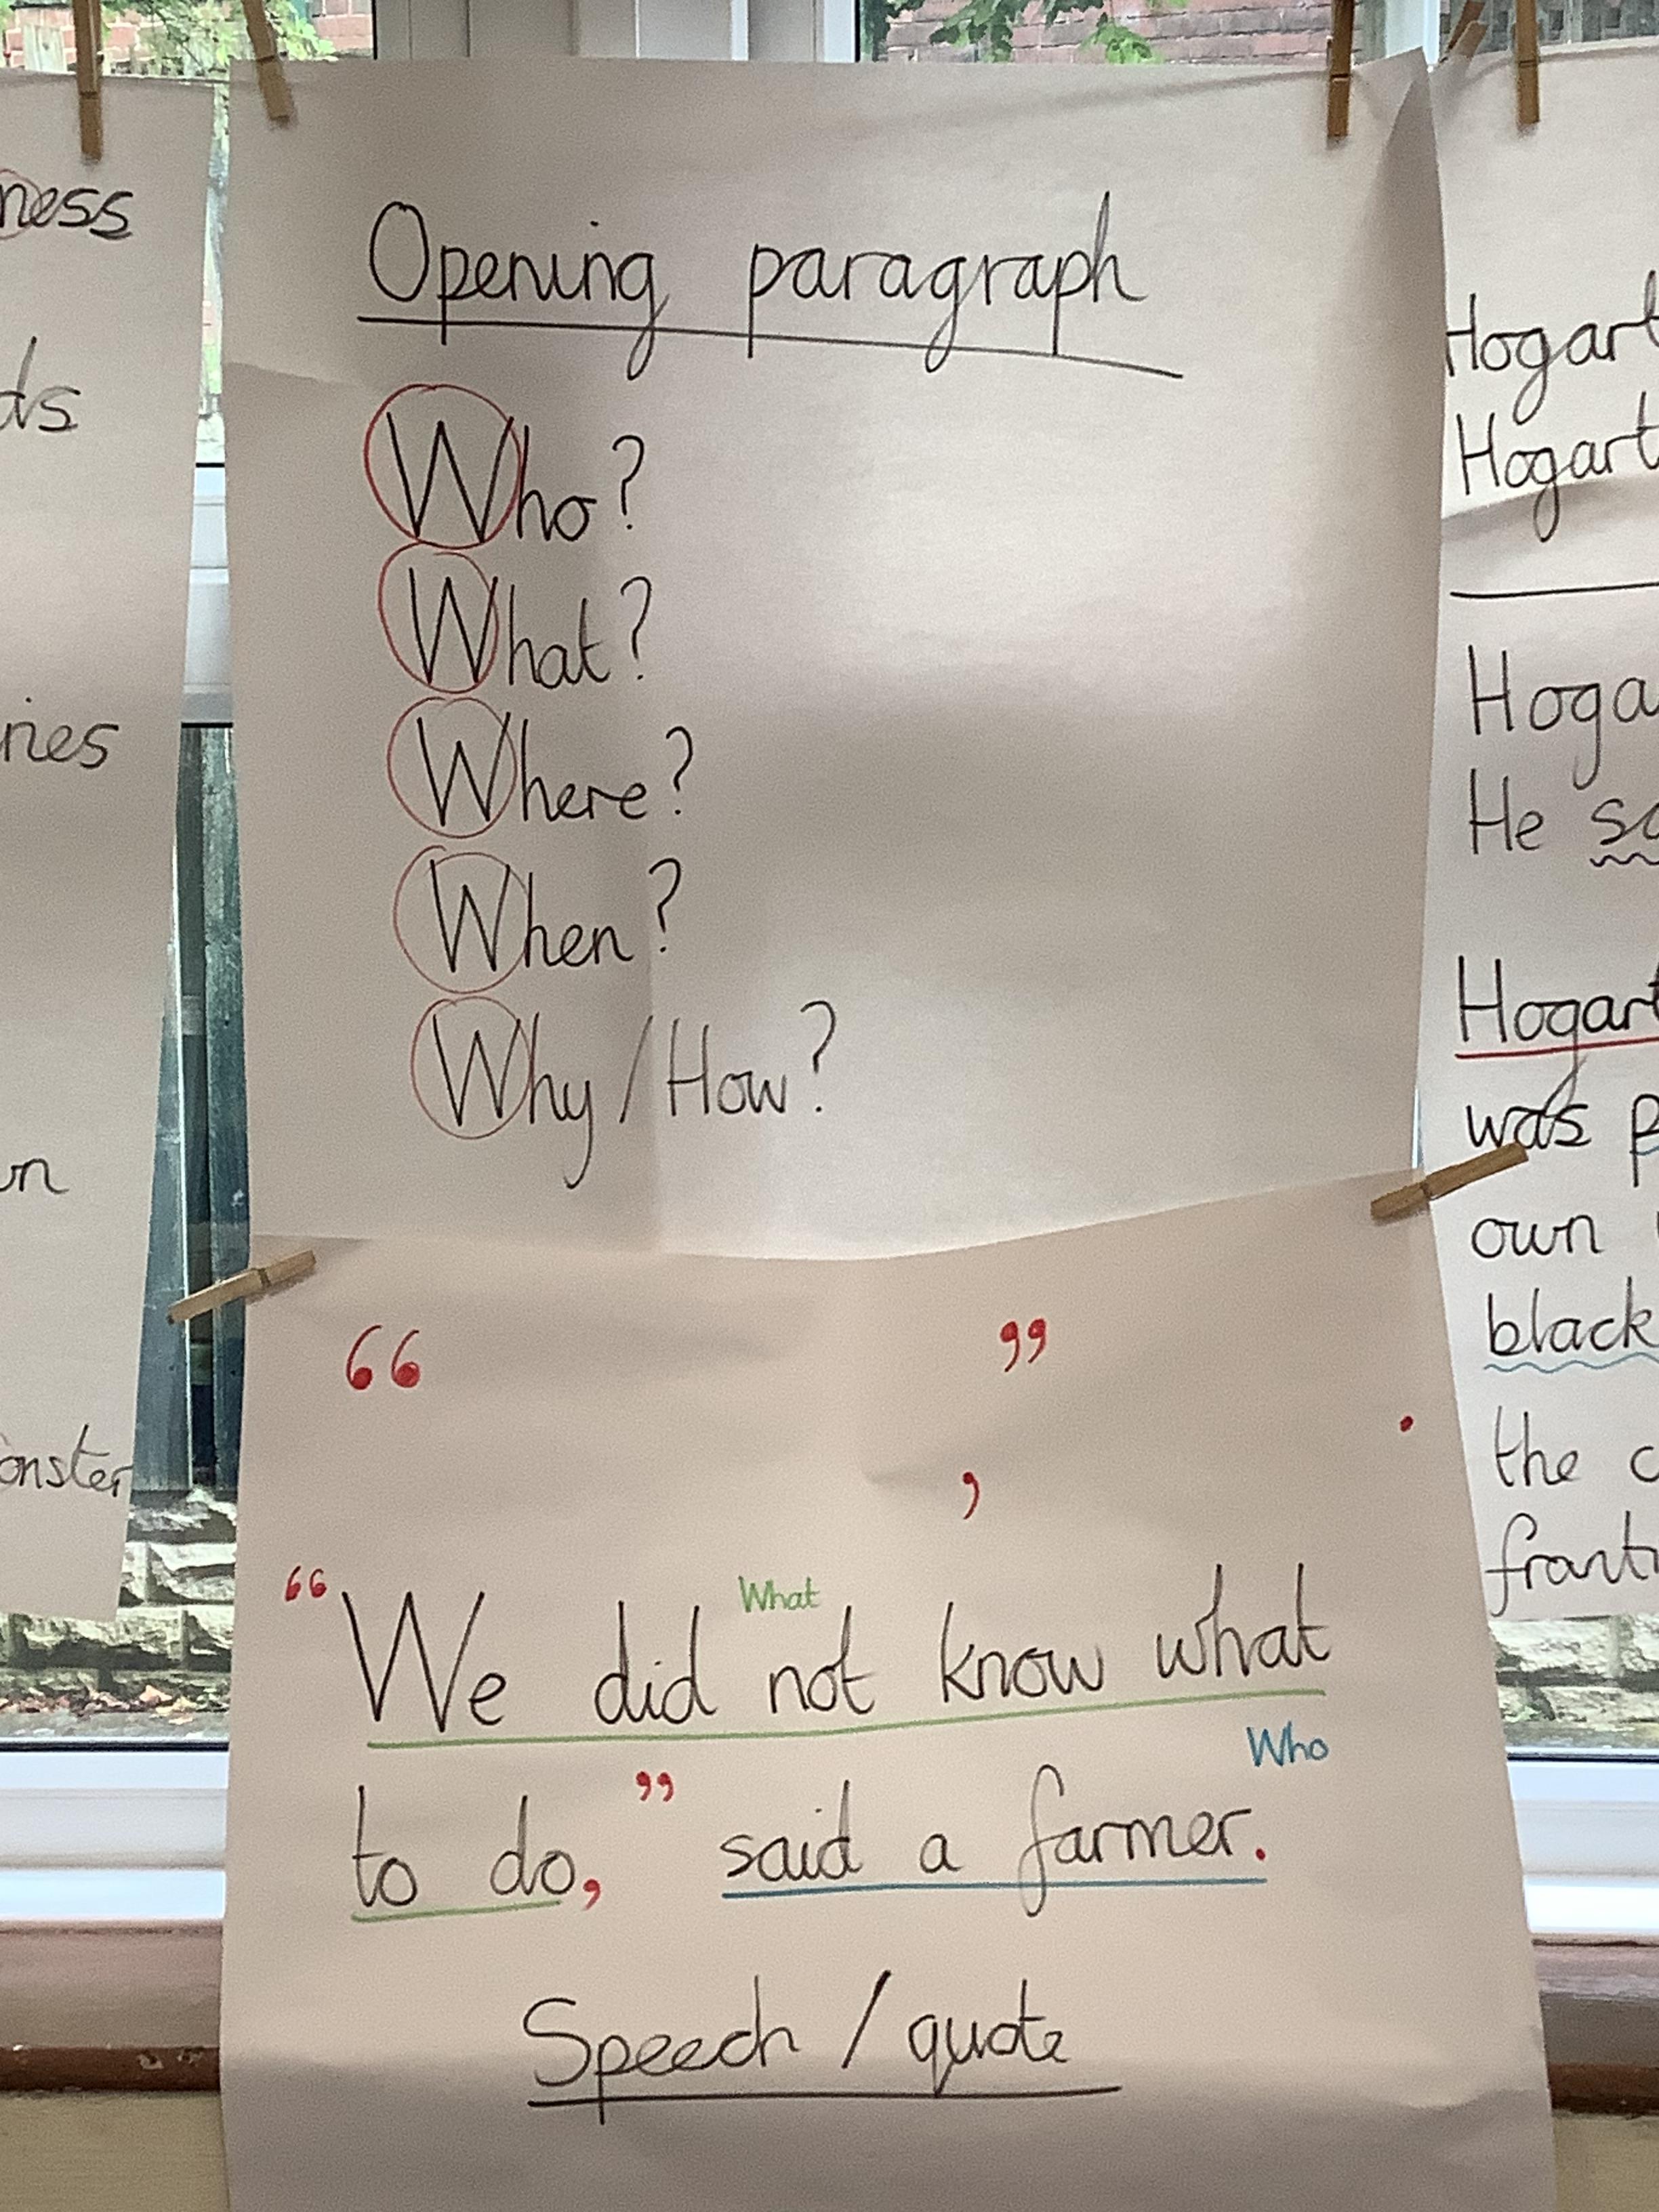 ness
ds
ries
wn
onster
Opening paragraph
Who?
What?
Where?
When?
Why/How?
“ ”
, .
What
“We did not know what
Who
to do,” said a farmer.
Speech / quote
Hogart
Hogart
Hoga
He
Hogart
was
own
black
the c
frant